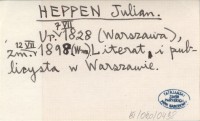 HEPPEN Julian.
7 VII
Ur. 1828 (Warszawa),
12 VII
zm. 1898 (Wwa) Literat i pub-
licysta w Warszawie.